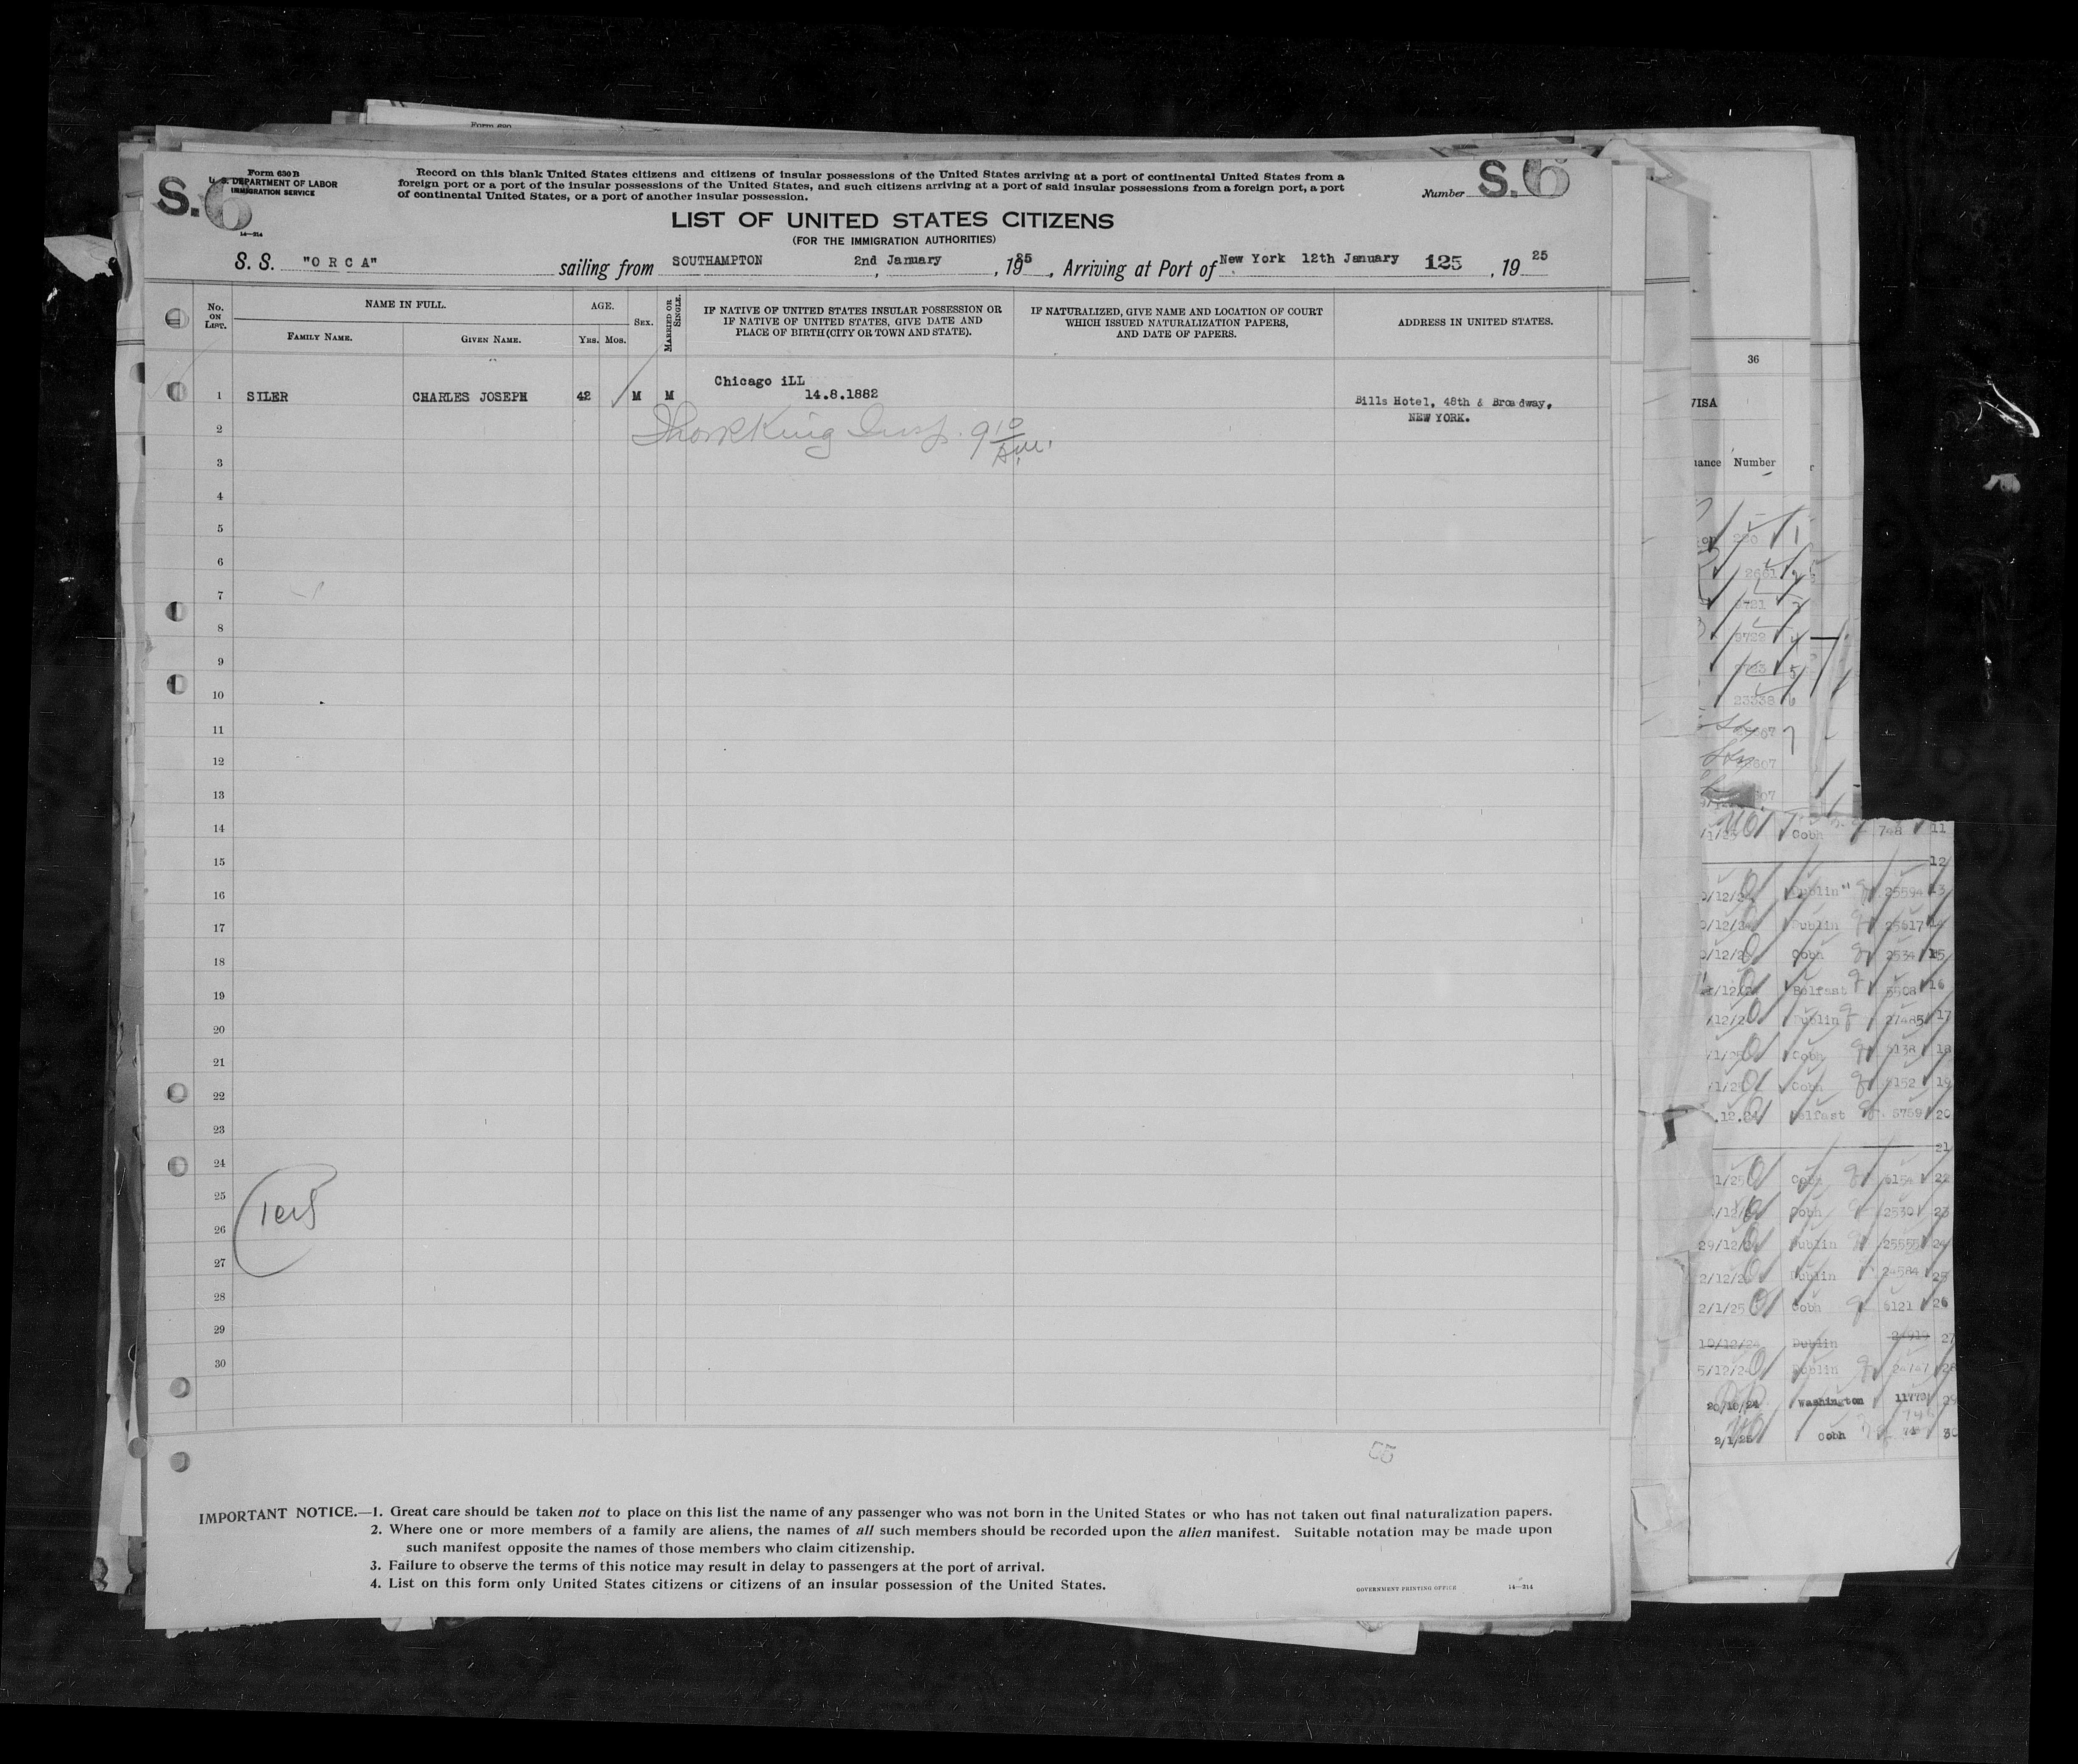 Form 630 B
U. S. DEPARTMENT OF LABOR
IMMIGRATION SERVICE
S. 6
14—214
Record on this blank United States citizens and citizens of insular possessions of the United States arriving at a port of continental United States from a
foreign port or a port of the insular possessions of the United States, and such citizens arriving at a port of said insular possessions from a foreign port, a port
of continental United States, or a port of another insular possession.
Number S. 6
LIST OF UNITED STATES CITIZENS
(FOR THE IMMIGRATION AUTHORITIES)
S. S. "O R C A" sailing from SOUTHAMPTON 2nd January, 1925, Arriving at Port of New York 12th January 125, 19 25
No. ON LIST. NAME IN FULL. AGE. SEX. MARRIED OR SINGLE. IF NATIVE OF UNITED STATES INSULAR POSSESSION OR IF NATIVE OF UNITED STATES, GIVE DATE AND PLACE OF BIRTH (CITY OR TOWN AND STATE). IF NATURALIZED, GIVE NAME AND LOCATION OF COURT WHICH ISSUED NATURALIZATION PAPERS, AND DATE OF PAPERS. ADDRESS IN UNITED STATES.
FAMILY NAME. GIVEN NAME. YRS. MOS.
Chicago iLL
1 SILER CHARLES JOSEPH 42 M M 14.8.1882 Bills Hotel, 48th & Broadway,
NEW YORK.
2
3
4
5
6
7
8
9
10
11
12
13
14
15
16
17
18
19
20
21
22
23
24
25
26
27
28
29
30
IMPORTANT NOTICE.—1. Great care should be taken not to place on this list the name of any passenger who was not born in the United States or who has not taken out final naturalization papers.
2. Where one or more members of a family are aliens, the names of all such members should be recorded upon the alien manifest. Suitable notation may be made upon
such manifest opposite the names of those members who claim citizenship.
3. Failure to observe the terms of this notice may result in delay to passengers at the port of arrival.
4. List on this form only United States citizens or citizens of an insular possession of the United States.
GOVERNMENT PRINTING OFFICE 14—214
36
Number
Cobh 748 11
12
Dublin" 25594 13
Dublin 25617 14
Cobh 15
Belfast 5508 16
Dublin 27485 17
Cobh 18
Cobh 19
Belfast 5759 20
21
Cobh 6154 22
Cobh 2530 23
29/12/ Dublin 24
2/12/ Dublin 24584 25
2/1/25 Cobh 6121 26
10/12/24 Dublin 27
5/12/2 Dublin 28
20/10/24 Washington 29
2/1/25 Cobh 30